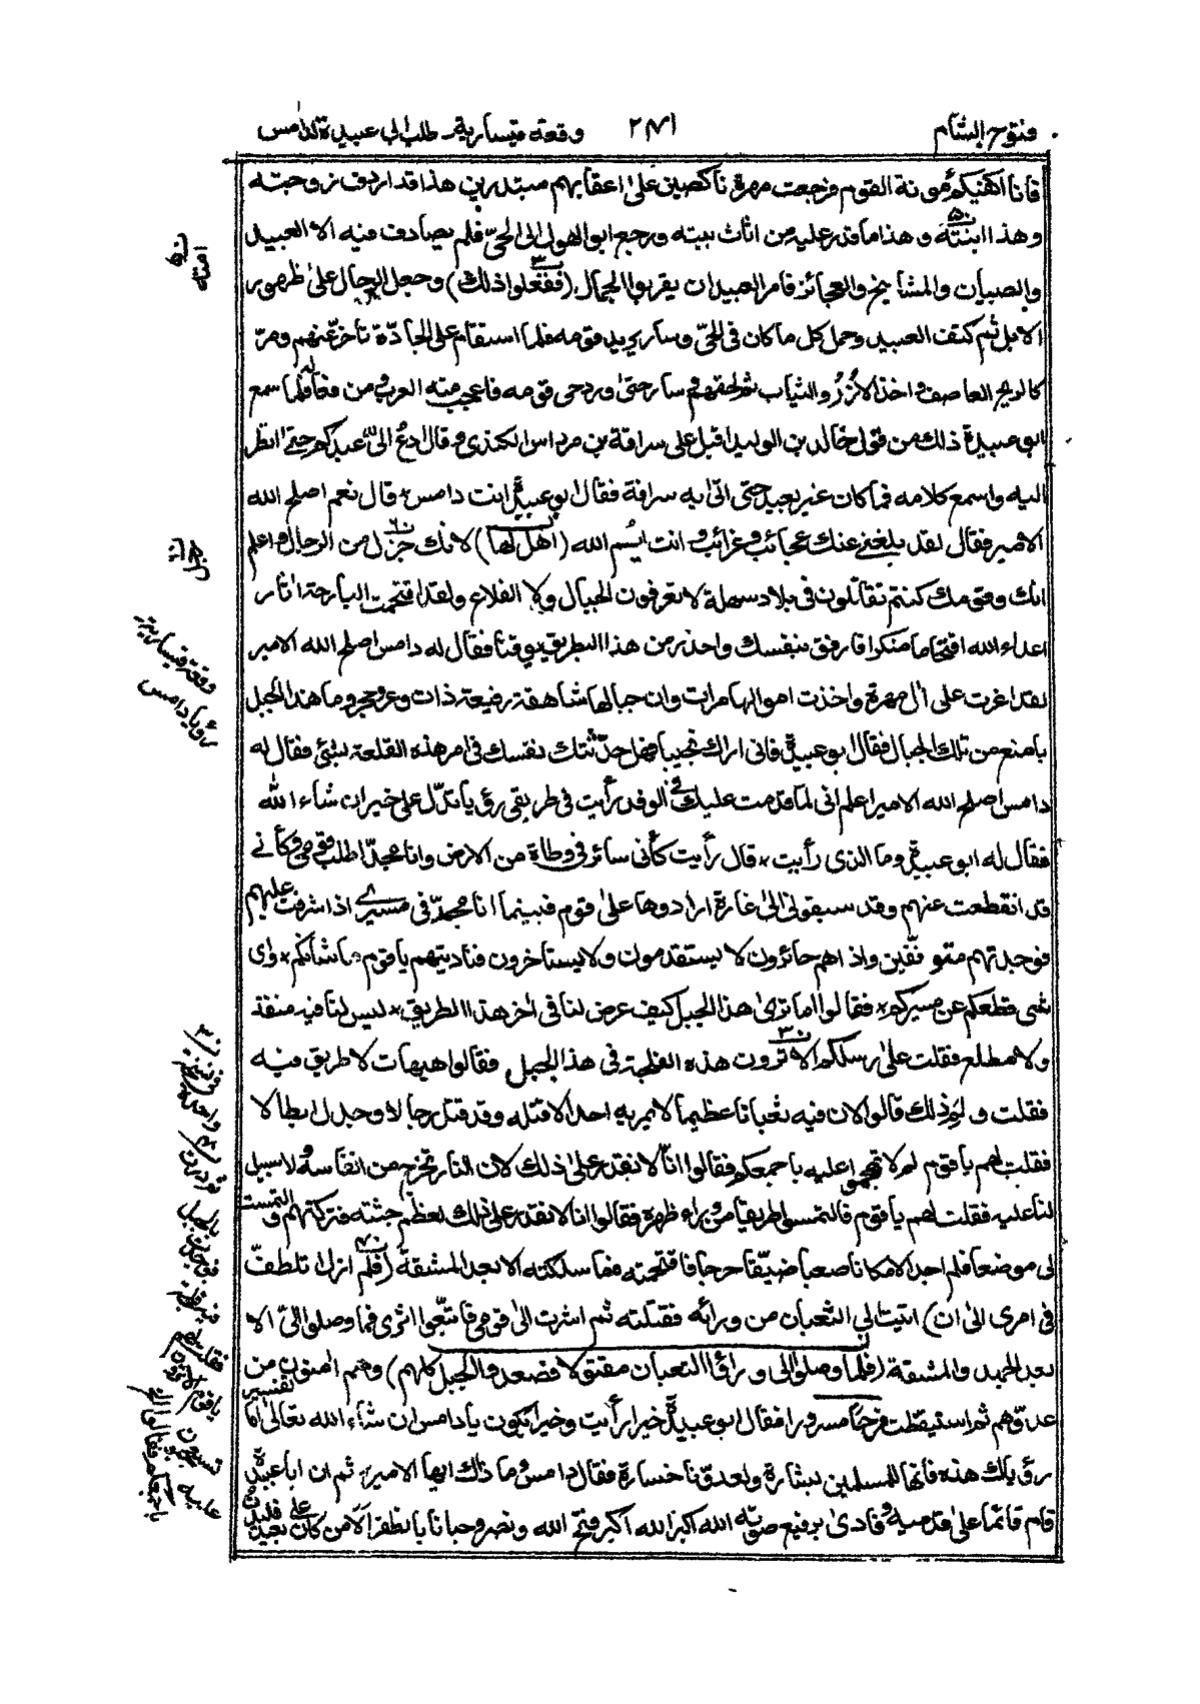 فتوح الشام ٢٤١ وقعة قيسارية - طلب ابي عبيدة لدامس
فانا اكفيكم مونة القوم فرجعت مهرة ناكصين على اعقابهم مبتدرين هذا قد اردف زوجته
وهذا ابنته وهذا ما قدر عليه من اثاث بيته ورجع ابو الهول الى الحيّ فلم يصادف فيه الا العبيد
والصبيان والمشايخ والعجائز فامر العبيد ان يقربوا الجمال (ففعلوا ذلك) وجعل الرجال على ظهور
الابل ثم كتف العبيد وحمل كل ما كان في الحيّ وسار يريد قومه فلما استقام على الجادّة تأخر عنهم ومرّ
كالريح العاصف واخذ الازُرُ والثياب ثم لحقهم سار حتى ورد حي قومه فاعجب منه العرب ومن فعاله فلما سمع
ابو عبيدة ذلك من قول خالد بن الوليد اقبل على سراقة بن مرداس الكندي وقال ادعُ اليّ عبدكم حتى انظر
اليه واسمع كلامه فما كان غير بعيد حتى اتى به سراقة فقال ابو عبيدة انت دامس * قال نعم اصلح الله
الامير فقال لقد بلغني عنك عجائب وغرائب وانت ايُم الله (اهل لها) لانك جزل من الرجال واعلم
انك وقومك كنتم تقاتلون في بلاد سهلة لا تعرفون الجبال ولا القلاع ولقد اقتحمت البارحة اثار
اعداء الله اقتحاما منكرا فارفق بنفسك واحذر من هذا البطريق يوقنا فقال له دامس اصلح الله الامير
لقد اغرت على ال مهرة واخذت اموالها مرات وان جبالها شاهقة رفيعة ذات وعر وحجر وما هذا الجبل
بامنع من تلك الجبال فقال ابو عبيدة فاني اراك نجيبا فهل حدّثتك نفسك في امر هذه القلعة بشئ فقال له
دامس اصلح الله الامير اعلم انى لما قدمت عليك في الوفد رأيت في طريقي رؤيا تدلّ على خير ان شاء الله
فقال له ابو عبيدة وما الذى رأيت * قال رأيت كأني سائر في وطاة من الارض وانا مجدّ اطلب قومي وكأني
قد انقطعت عنهم وقد سبقوني الى غارة ارادوها على قوم فبينما انا مجدّ في مسيري اذ اشرفت عليهم
فوجدتهم متوقفين واذا هم حائرون لا يستقدمون ولا يستاخرون فناديتهم يا قوم ما شانكم * واى
شى قطعكم عن مسيركم * فقالوا اما ترى هذا الجبل كيف عرض لنا في اخر هذا الطريق * ليس لنا فيه منفذ
ولا مطلع فقلت على رسلكم الا ترون هذه الفلجة في هذا الجبل فقالوا هيهات لا طريق فيه
فقلت ولم ذلك قالوا لان فيه ثعبانا عظيما لا يمر به احد الا قتله وقد قتل رجالا وجدل ابطالا
فقلت لهم يا قوم لم لا تهجموا عليه باجمعكم فقالوا انّا لا نقدر على ذلك لان النار تخرج من انفاسه ولا سبيل
لنا عليه فقلت لهم يا قوم فالتمسوا طريقا من وراء ظهره فقالوا انا لا نقدر على ذلك لعظم جثته فتركتهم والتمست
لى موضعا فلم اجد الا مكانا صعبا ضيّقا حرجا فاقتحمته فما سلكته الا بعد المشقة (فلم ازل اتلطف
في امرى الى ان) اتيت الى الثعبان من ورائه فقتلته ثم اشرت الى قومي فاتبعوا اثرى فما وصلوا اليّ الا
بعد الجهد والمشقة (فلما وصلوا الى وراؤا الثعبان مقتولا فصعدوا الجبل كلهم) وهم امنون من
عدوّهم ثم استيقظت فرحا مسرورا فقال ابو عبيدة خيرا رأيت وخيرا يكون يا دامس ان شاء الله تعالى اما تفسير
رؤياك هذه فانها للمسلمين بشارة ولعدوّنا خسارة فقال دامس وما ذلك ايها الامير * ثم ان ابا عبيدة
قام قائما على قدميه ونادى برفيع صوته الله اكبر الله اكبر فتح الله ونصر وحبانا بالظفر الا من كان على بعيد فليدن
وقعة قيسارية
رؤيا دامس